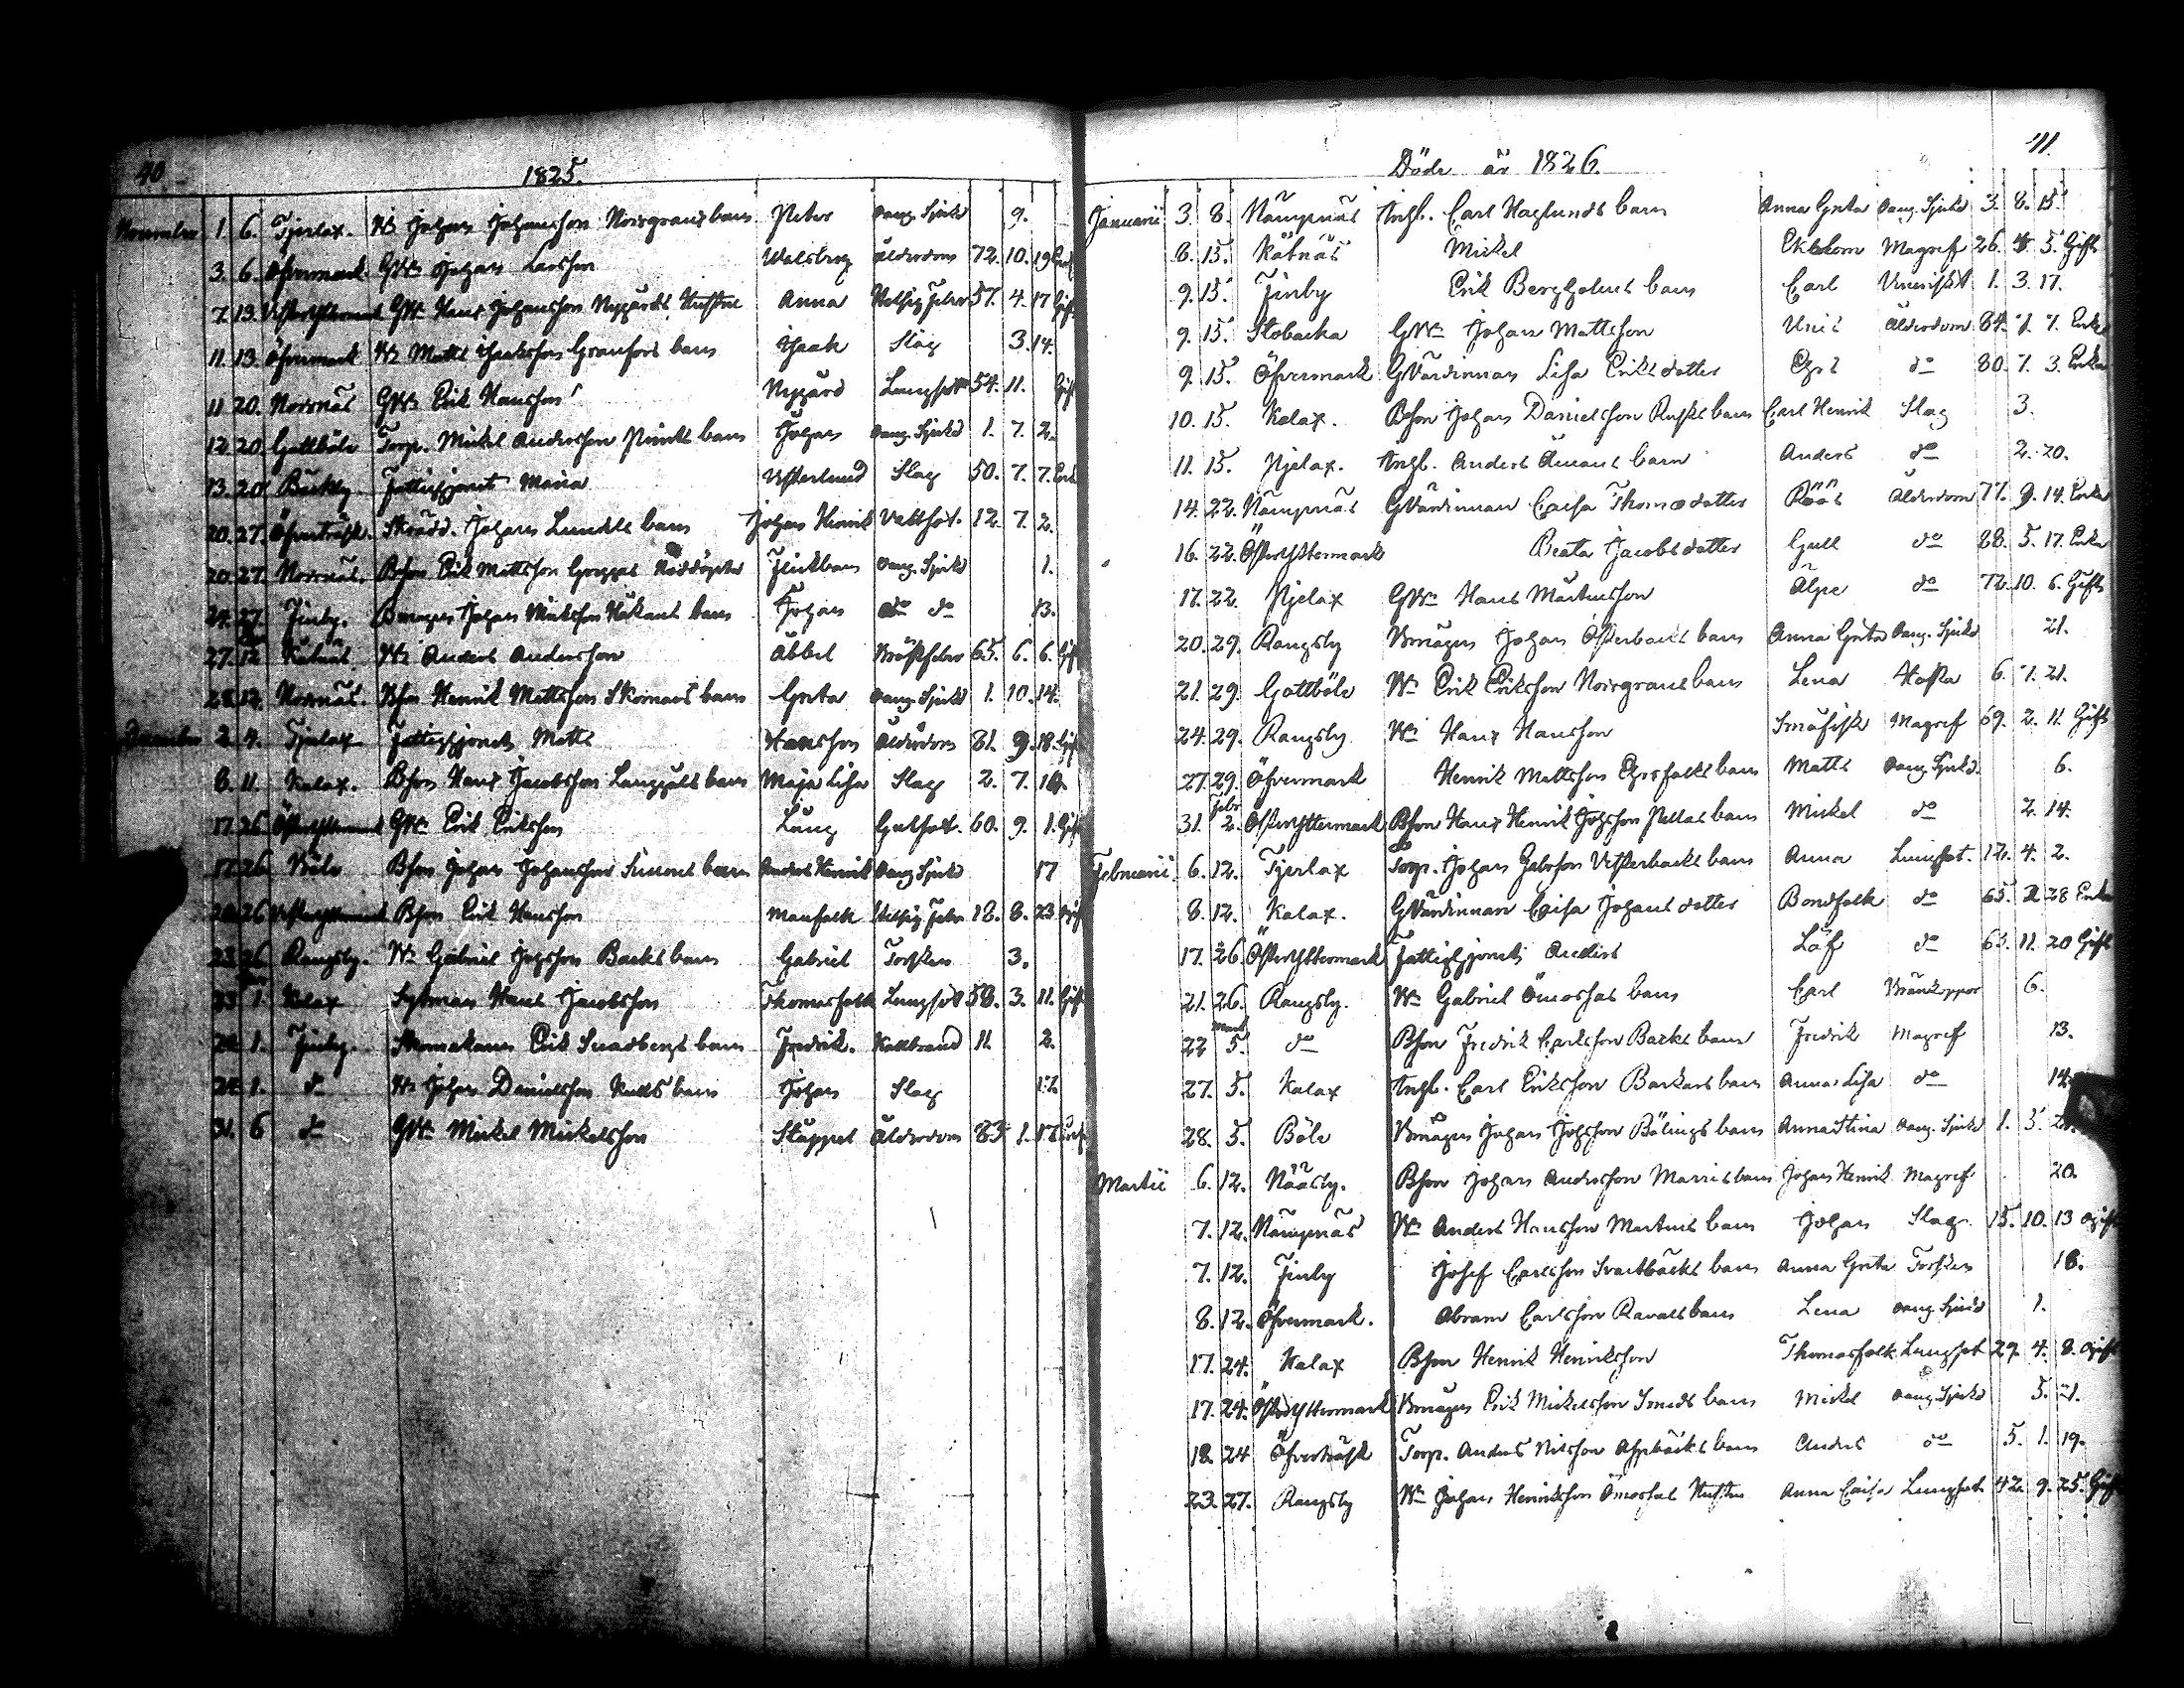 40
1825.
November 1. 6. Tjerlax. Bd Johan Johansson Norrgrans barn Peter oang. Sjukd 9.
3. 6. Öfvermark. GBn Johan Larsson Walsberg ålderdom 72. 10. 19 Enkl
7. 13. Vesterÿttermark GBn Hans Johansson Nygårds Hustru Anna Hetsig feber 57. 4. 17 Gift
11. 13. Öfvermark Bn Matts Isaksson Granfors barn Isaak Slag 3. 14.
11. 20. Norrnäs GBn Erik Hansson Nygård Lungsot 54. 11. Gift
12. 20. Gottböle Torp. Mickel Andersson barn Johan oang. Sjukd 1. 7. 2.
13. 20. Fattighjonet Maria Vesterlund Slag 50. 7. 7.
20. 27. Öfverträsk. Skrädd. Johan Lundells barn Johan Henrik Vattsot. 12. 7. 2.
20. 27. Norrnäs. Bson Erik Mattsson barn oang. Sjukd 1.
24. 27. Finby. Bmågen Johan Mickelsson Håkans barn Johan do do 13.
27. 12. Kåtnäs. Bn Anders Andersson Äbbel Bröstfeber 65. 6. 6. Gift
28. 12. Norrnäs. Bson Henrik Mattsson Skomars barn Greta oang. Sjukd 1. 10. 14.
December 2. 4. Tjerlax Fattighjonet Matts Hansson Ålderdom 81. 9. 18. Gift
6. 11. Kalax. Bson Hans Jacobsson barn Maja Lisa Slag 2. 7. 16.
17. 26 Österÿttermark GBn Erik Eriksson Lång Gulsot. 60. 9. 1. Gift
17. 26 Böle Bson Johan Johansson Simons barn Anders Henrik oang Sjukd 17
20. 26 Vesterÿttermark Bson Erik Hansson Manfolk Hetsig Feber 18. 8. 23. ogift
23. 26 Rangsby. Bn Gabriel Johsson Backs barn Gabriel Torsken 3.
23. 1. Kalax Sytman Hans Jacobsson Thomasfolk Lungsot 58. 3. 11. Gift
24. 1. Finby. Skomakaren Erik barn Fredrik. Kallbrand 11. 2.
24. 1. do Bn Johan Danielsson Kulls barn Johan Slag 12
31. 6 do GBn Mickel Mickelsson Skäppel Ålderdom 83. 1. 17
41.
Döde år 1826.
Januarii 3. 8. Nämpnäs Inhl. Carl Haglunds barn Anna Greta oang. Sjukd 3. 8. 15.
8. 15. Kåtnäs Mickel Ekholm Magref 26. 5. Gift
9. 15. Finby Erik Bergholms barn Carl 1. 3. 17.
9. 15. Stobacka GBn Johan Mattsson Ålderdom 84. 7. 7. Enkl
9. 15. Öfvermark GVärdinnan Lisa Eriksdotter do 80. 7. 3. Enka
10. 15. Kalax. Bson Johan Danielsson barn Carl Henrik Slag 3.
11. 15. Pjelax. Inhl. Anders barn Anders do 2. 20.
14. 22. Nämpnäs GVärdinnan Caisa Thomædotter Röös Ålderdom 77. 9. 14. Enka
16. 22. Österÿttermark Beata Jacobsdotter Gull do 88. 5. 17. Enka
17. 22. Pjelax GBn Hans Mårtensson do 72. 10. 6. Gift
20. 29. Rangsby Bmågen Johan Österbacks barn Anna Greta oang. Sjukd 21.
21. 29. Gottböle Bn Erik Eriksson Norrgrans barn Lena Hosta 6. 7. 21.
24. 29. Rangsby Bn Hans Hansson Småfisk Magref 69. 2. 11. Gift
27. 29. Öfvermark Henrik Mattsson barn Matts oang. Sjukd. 6.
31. febr 2. Österÿttermark Bson Hans Henrik Johsson Pellas barn Mickel do 2. 14.
Februarii 6. 12. Tjerlax Torp. Johan Gabrsson Vesterbacks barn Anna Lungsot. 12. 4. 2.
8. 12. Kalax. GVärdinnan Caisa Johansdotter Bondfolk do 65. 2. 28 Enka
17. 26. Österÿttermark Fattighjonet Anders Löf do 63. 11. 20 Gift
21. 26. Rangsby. Bn Gabriel Ömossas barn Carl 6.
22 mart 5. do Bson Fredrik Carlsson Backs barn Fredrik Magref 13.
27. 5. Kalax Inhl. Carl Eriksson Backars barn Anna Lisa do 14.
28. 5. Böle Bmågen Johan Johsson Bölings barn Anna Stina oang. Sjukd 1. 5.
Martii 6. 12. Nääsby. Bson Johan Andersson Marris barn Johan Henrik Magref 20.
7. 12. Nämpnäs Bn Anders Hansson Martens barn Johan Slag. 15. 10. 13 ogift
7. 12. Finby Josef Carlsson Svartbäcks barn Anna Greta Torsken 18.
8. 12. Öfvermark. Abram Carlsson Ravals barn Lena oang. Sjukd 1.
17. 24. Kalax Bson Henrik Henriksson Thomasfolk Lungsot 29. 4. 8. ogift
17. 24. Österÿttermark Bmågen Erik Mickelsson Smeds barn Mickel oang. Sjukd 5. 21.
18. 24 Öfverträsk Torp. Anders Nilsson barn Anders do 5. 1. 19.
23. 27. Rangsby Bn Johan Henriksson Ömossas Hustru Anna Caisa Lungsot 42. 9. 25. Gift